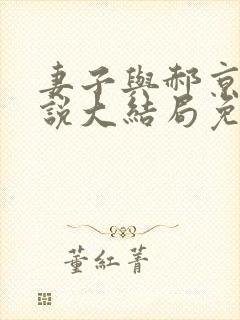 妻子與郝京
說大結局免
董紅菁